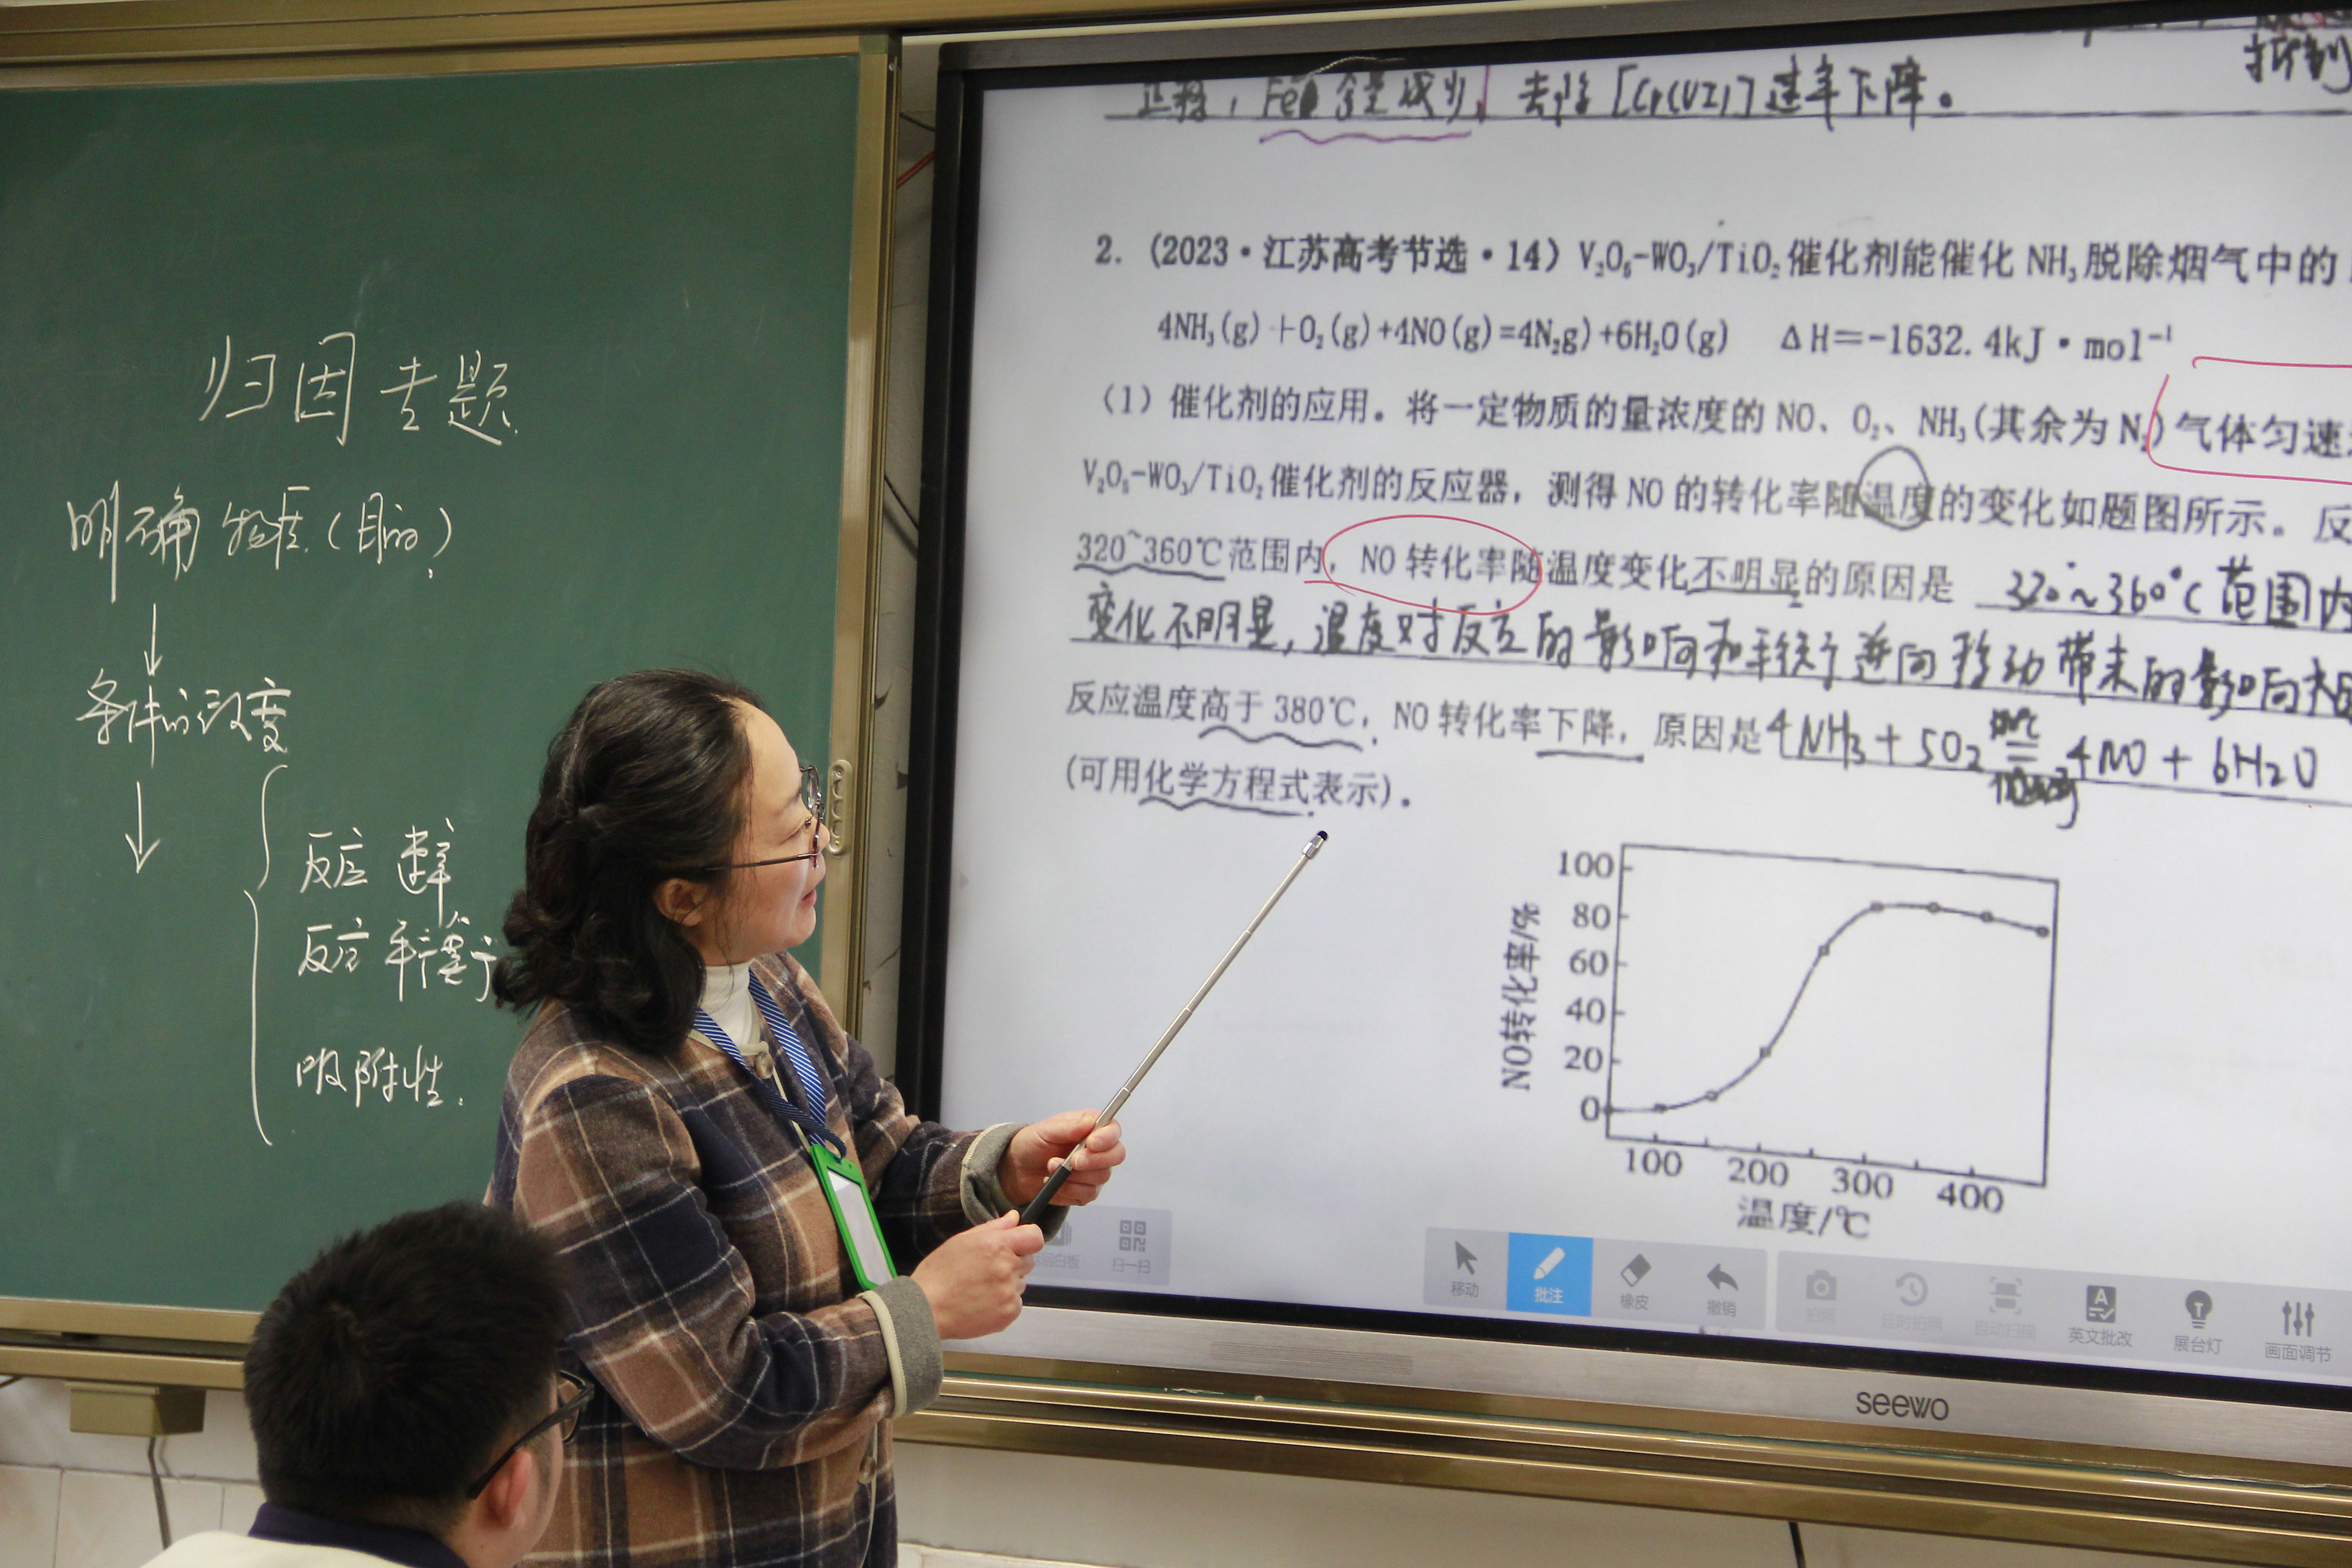 归因专题
明确物质(目的)
条件的设度
反应速率
反应平衡
吸附性.
Fe 含量减少, 去除[Cr(VI)]速率下降。
2. (2023·江苏高考节选·14) V₂O₅-WO₃/TiO₂催化剂能催化NH₃脱除烟气中的
4NH₃(g)+O₂(g)+4NO(g)=4N₂g)+6H₂O(g) ΔH=-1632.4kJ·mol⁻¹
(1) 催化剂的应用。将一定物质的量浓度的NO、O₂、NH₃(其余为N₂)气体匀速
V₂O₅-WO₃/TiO₂催化剂的反应器，测得NO的转化率随温度的变化如题图所示。反
320~360℃范围内，NO转化率随温度变化不明显的原因是 320~360℃范围内
变化不明显, 温度对反应的影响和平衡逆向移动带来的影响
反应温度高于380℃，NO转化率下降，原因是 4NH₃+5O₂ = 4NO+6H₂O
(可用化学方程式表示)。
NO转化率/%
100
80
60
40
20
0
100 200 300 400
温度/℃
扫一扫
移动 批注 橡皮 撤销 拍照 延时拍照 自动扫描 英文批改 展台灯 画面调节
seewo